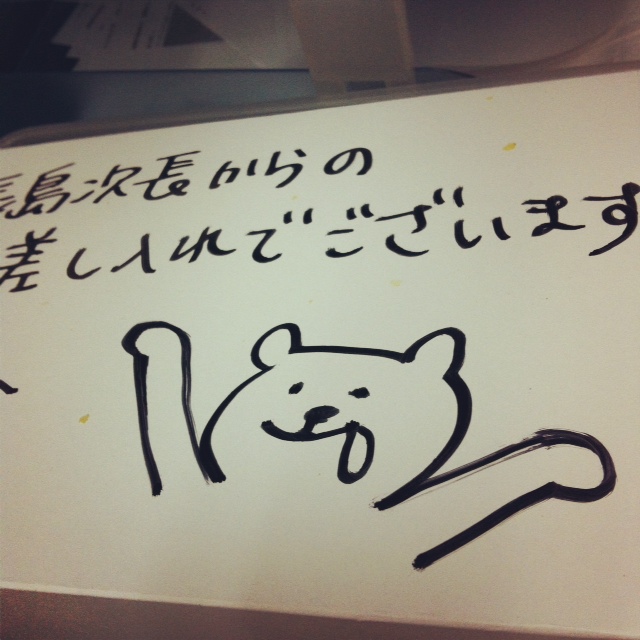 長島次長からの
差し入れでございます